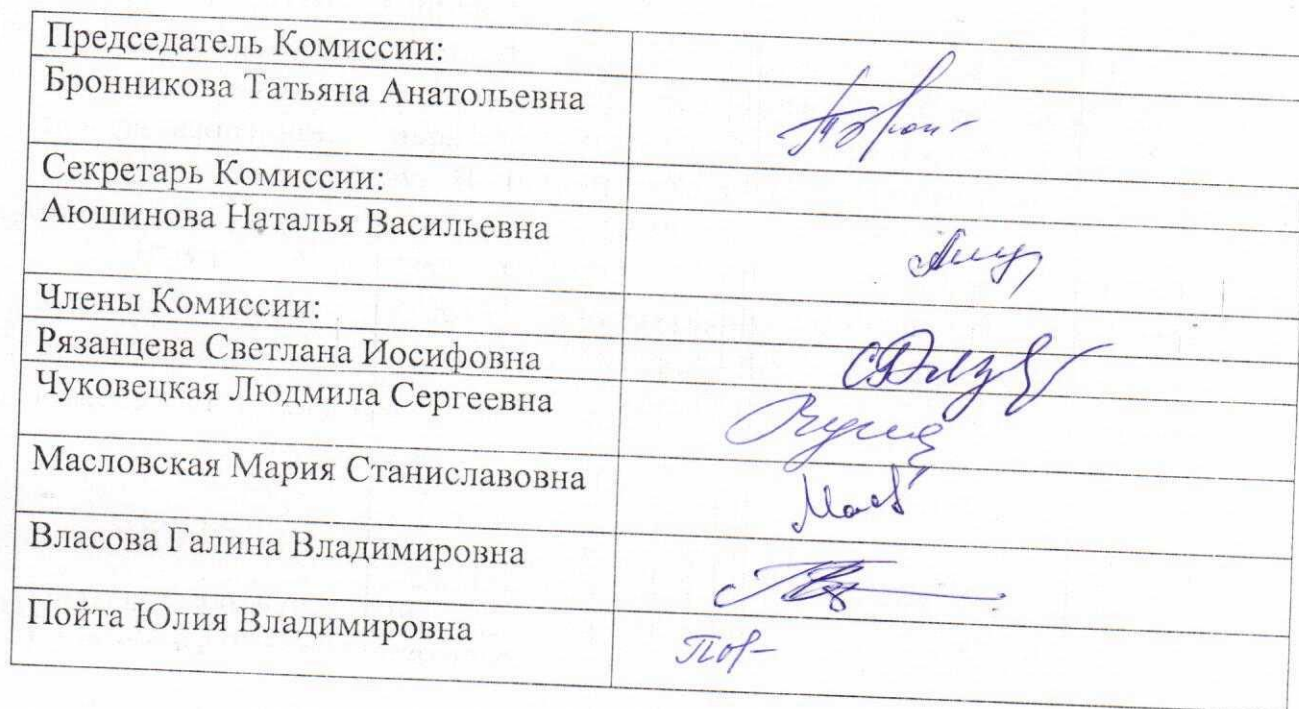 Председатель Комиссии:
Бронникова Татьяна Анатольевна
Секретарь Комиссии:
Аюшинова Наталья Васильевна
Члены Комиссии:
Рязанцева Светлана Иосифовна
Чуковецкая Людмила Сергеевна
Масловская Мария Станиславовна
Власова Галина Владимировна
Пойта Юлия Владимировна